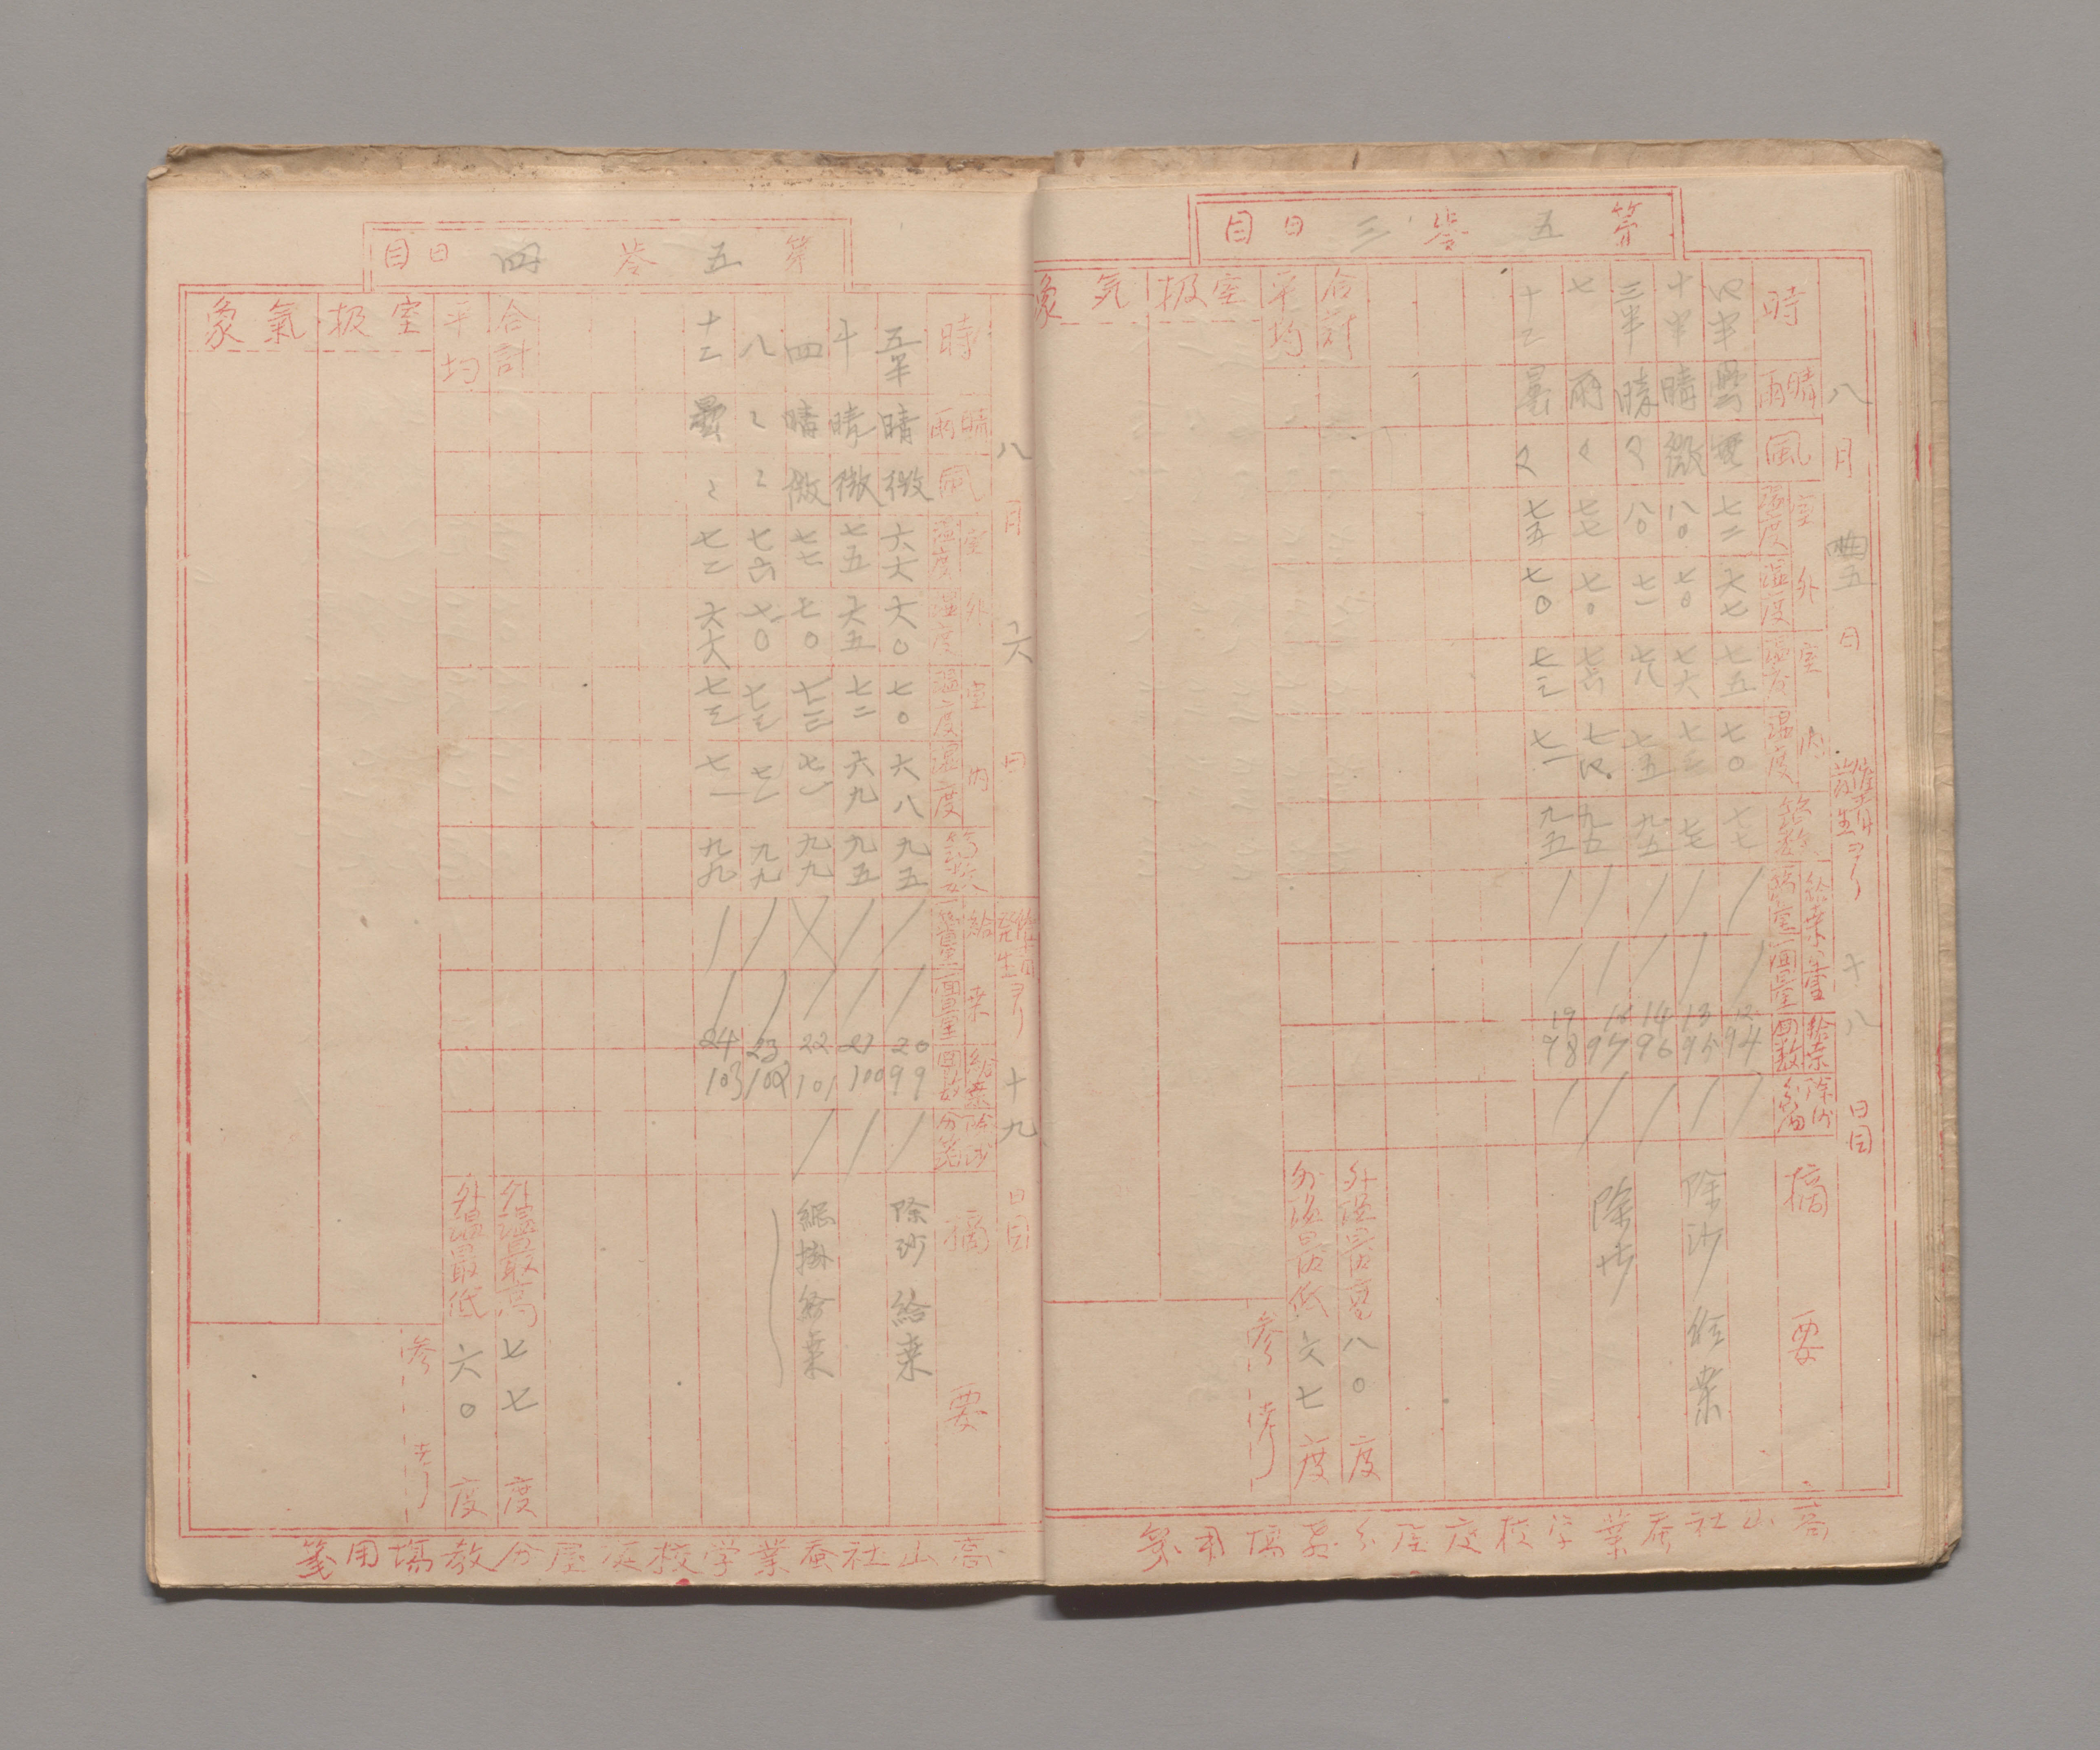 第五齢三日目
八月五日 催青発生ヨリ十八日目
時 晴雨 風 室外 温度 湿度 室内 温度 湿度 箔数 給桑量 箔量 一回量 給桑回数 除沙分箔 摘要
四半 曇 無 七二 六七 七五 七〇 七七 12 94
十半 晴 微 八〇 七〇 七六 七二 七七 13 95 除沙 給桑
三半 晴 〃 八〇 七一 七八 七五 九五 14 96
七 雨 〃 七七 七〇 七六 七四 九五 97 除沙
十二 曇 〃 七五 七〇 七三 七一 九五 19 98
合計 外温最高 八〇度
平均 外温最低 六七度
室扱 参考
気象
高山社蚕業学校庭屋分教場用箋
第五齢四日目
八月六日 催青発生ヨリ十九日目
時 晴雨 風 室外 温度 湿度 室内 温度 湿度 箔数 給桑 箔量 一回量 給桑回数 除沙分箔 摘要
五半 晴 微 六六 六〇 七〇 六八 九五 20 99 除沙 給桑
十 晴 微 七五 六五 七二 六九 九五 21 100
四 晴 微 七七 七〇 七三 七一 九九 22 101 網掛給桑
八 〃 〃 七六 七〇 七三 七一 九九 23 102
十二 曇 〃 七二 六六 七三 七一 九九 24 103
合計 外温最高 七七度
平均 外温最低 六〇度
室扱 参考
氣象
高山社蚕業学校庭屋分教場用箋